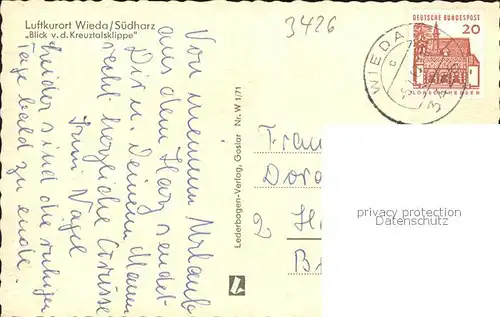 Luftkurort Wieda/Südharz
„Blick v. d. Kreuztalsklippe"
3426
DEUTSCHE BUNDESPOST
20
LORSCH/HESSEN
WIEDA
Von meinem Urlaub
aus dem Harz sendet
Dir u. Deinem Mann
recht herzliche Grüsse
Nagel
Leider sind die ruhigen
Tage bald zu ende.
Lederbogen-Verlag, Goslar Nr. W 1/71
Frau
Dora
2 H
B
privacy protection
Datenschutz